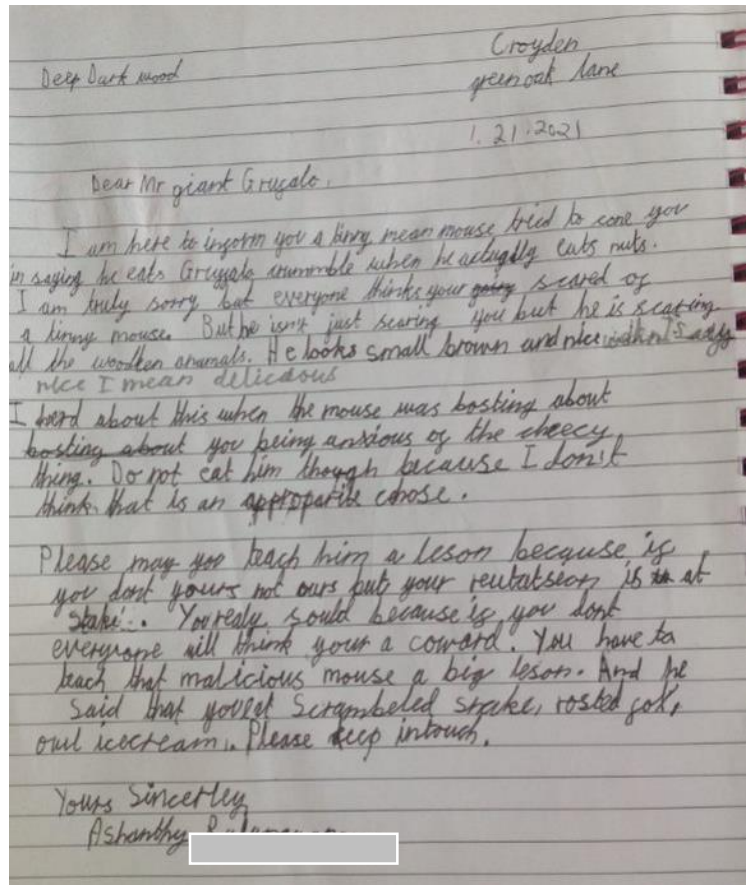 Croyden
Deep Dark wood
green oak lane
1.21.2021
Dear Mr giant Grufalo,
I am here to inform you a tinny mean mouse tried to cone you
in saying he eats Gruffalo crummble when he actuglly eats nuts.
I am truly sorry but everyone thinks your scared of
a tinny mouse. But he isn't just scaring you but he is scaring
all the woodten anamals. He looks small brown and nice
nice I mean delicious
I herd about this when the mouse was bosting about
bosting about you being anxious of the cheecy
thing. Do not eat him though because I don't
think that is an approparite chose.
Please may you teach him a leson because if
you dont yours not ours but your reutatseon is at
stake. You realy sould because if you dont
everyone will think your a coward. You have to
teach that malicious mouse a big leson. And he
said that you eat Scrambeled snake, rosted fox,
owl icecream. Please keep intouch.
Yours Sincerley
Ashanthy